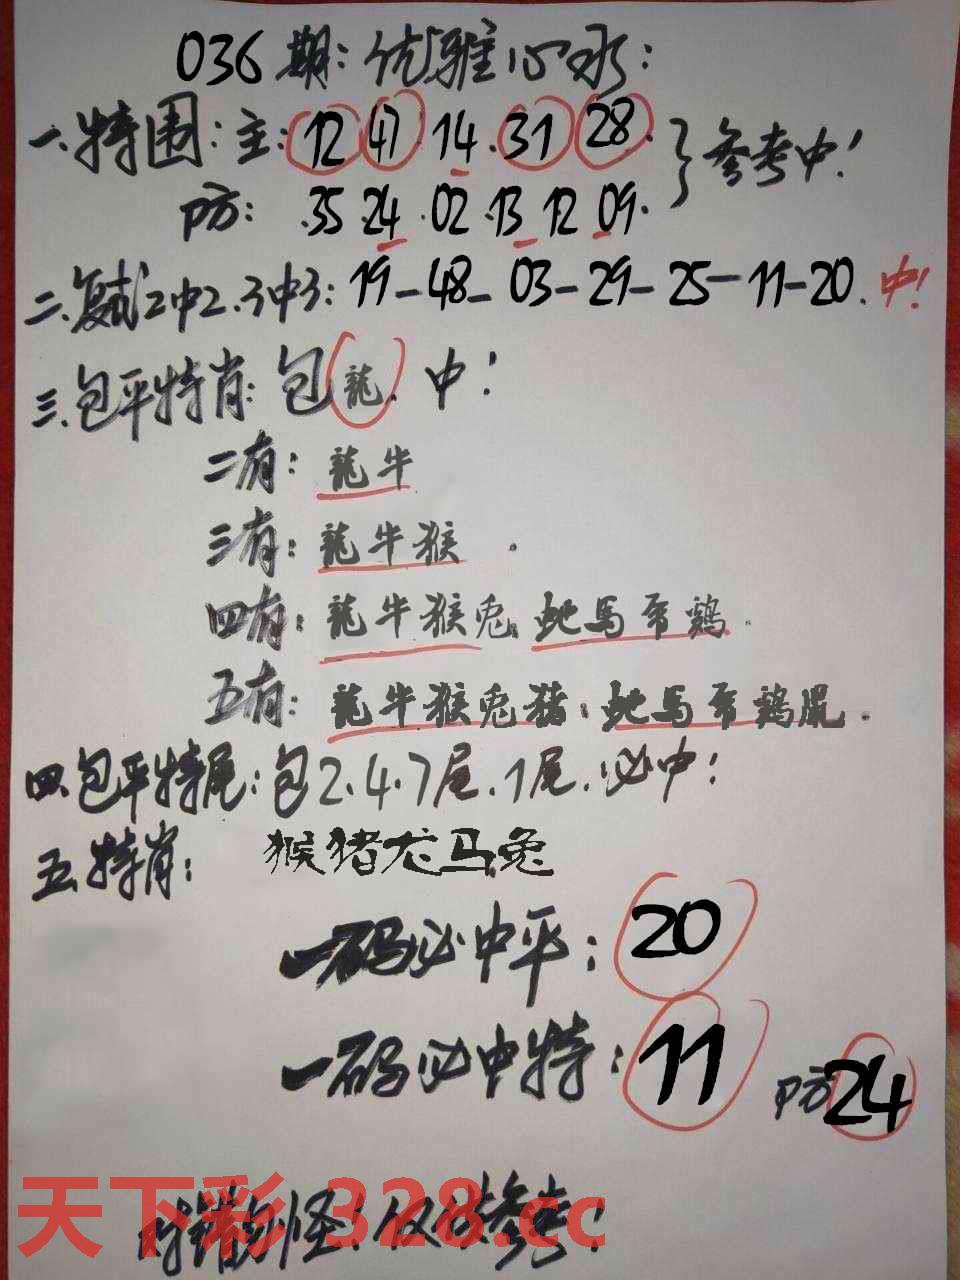 036期:优雅心水:
一.特围:主:12 47 14.31 28.}参考中!
防:.35 24.02.13 12 09.
二.复式2中2.3中3:19-48-03-29-25-11-20.中!
三.包平特肖:包龍.中!
二有:龍牛
三有:龍牛猴.
四有:龍牛猴兎.蛇馬帝鷄.
五有:龍牛猴兎猪.蛇馬帝鷄鼠.
四.包平特尾:包2.4.7尾.1尾.必中!
五.特肖:猴猪龙马兔
一码必中平:20
一码必中特:11 防24
对错勿怪!仅供参考!
天下彩 328.cc